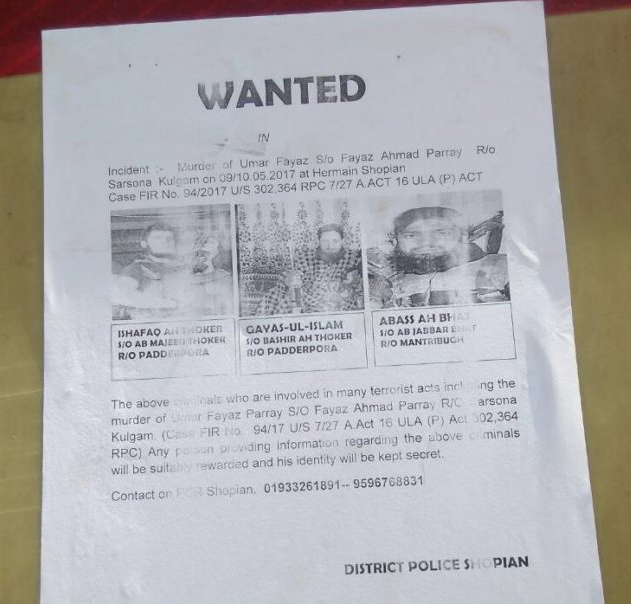 WANTED
IN
Incident :- Murder of Umar Fayaz S/o Fayaz Ahmad Parray R/o
Sarsona Kulgam on 09/10.05.2017 at Hermain Shopian
Case FIR No. 94/2017 U/S 302,364 RPC 7/27 A.ACT 16 ULA (P) ACT
ISHAFAQ AH THOKER
S/O AB MAJEED THOKER
R/O PADDERPORA
GAYAS-UL-ISLAM
S/O BASHIR AH THOKER
R/O PADDERPORA
ABASS AH BHAT
S/O AB JABBAR BHAT
R/O MANTRIBUGH
The above criminals who are involved in many terrorist acts including the
murder of Umar Fayaz Parray S/O Fayaz Ahmad Parray R/O Sarsona
Kulgam. (Case FIR No. 94/17 U/S 7/27 A.Act 16 ULA (P) Act 302,364
RPC) Any person providing information regarding the above criminals
will be suitably rewarded and his identity will be kept secret.
Contact on PCR Shopian. 01933261891-- 9596768831
DISTRICT POLICE SHOPIAN